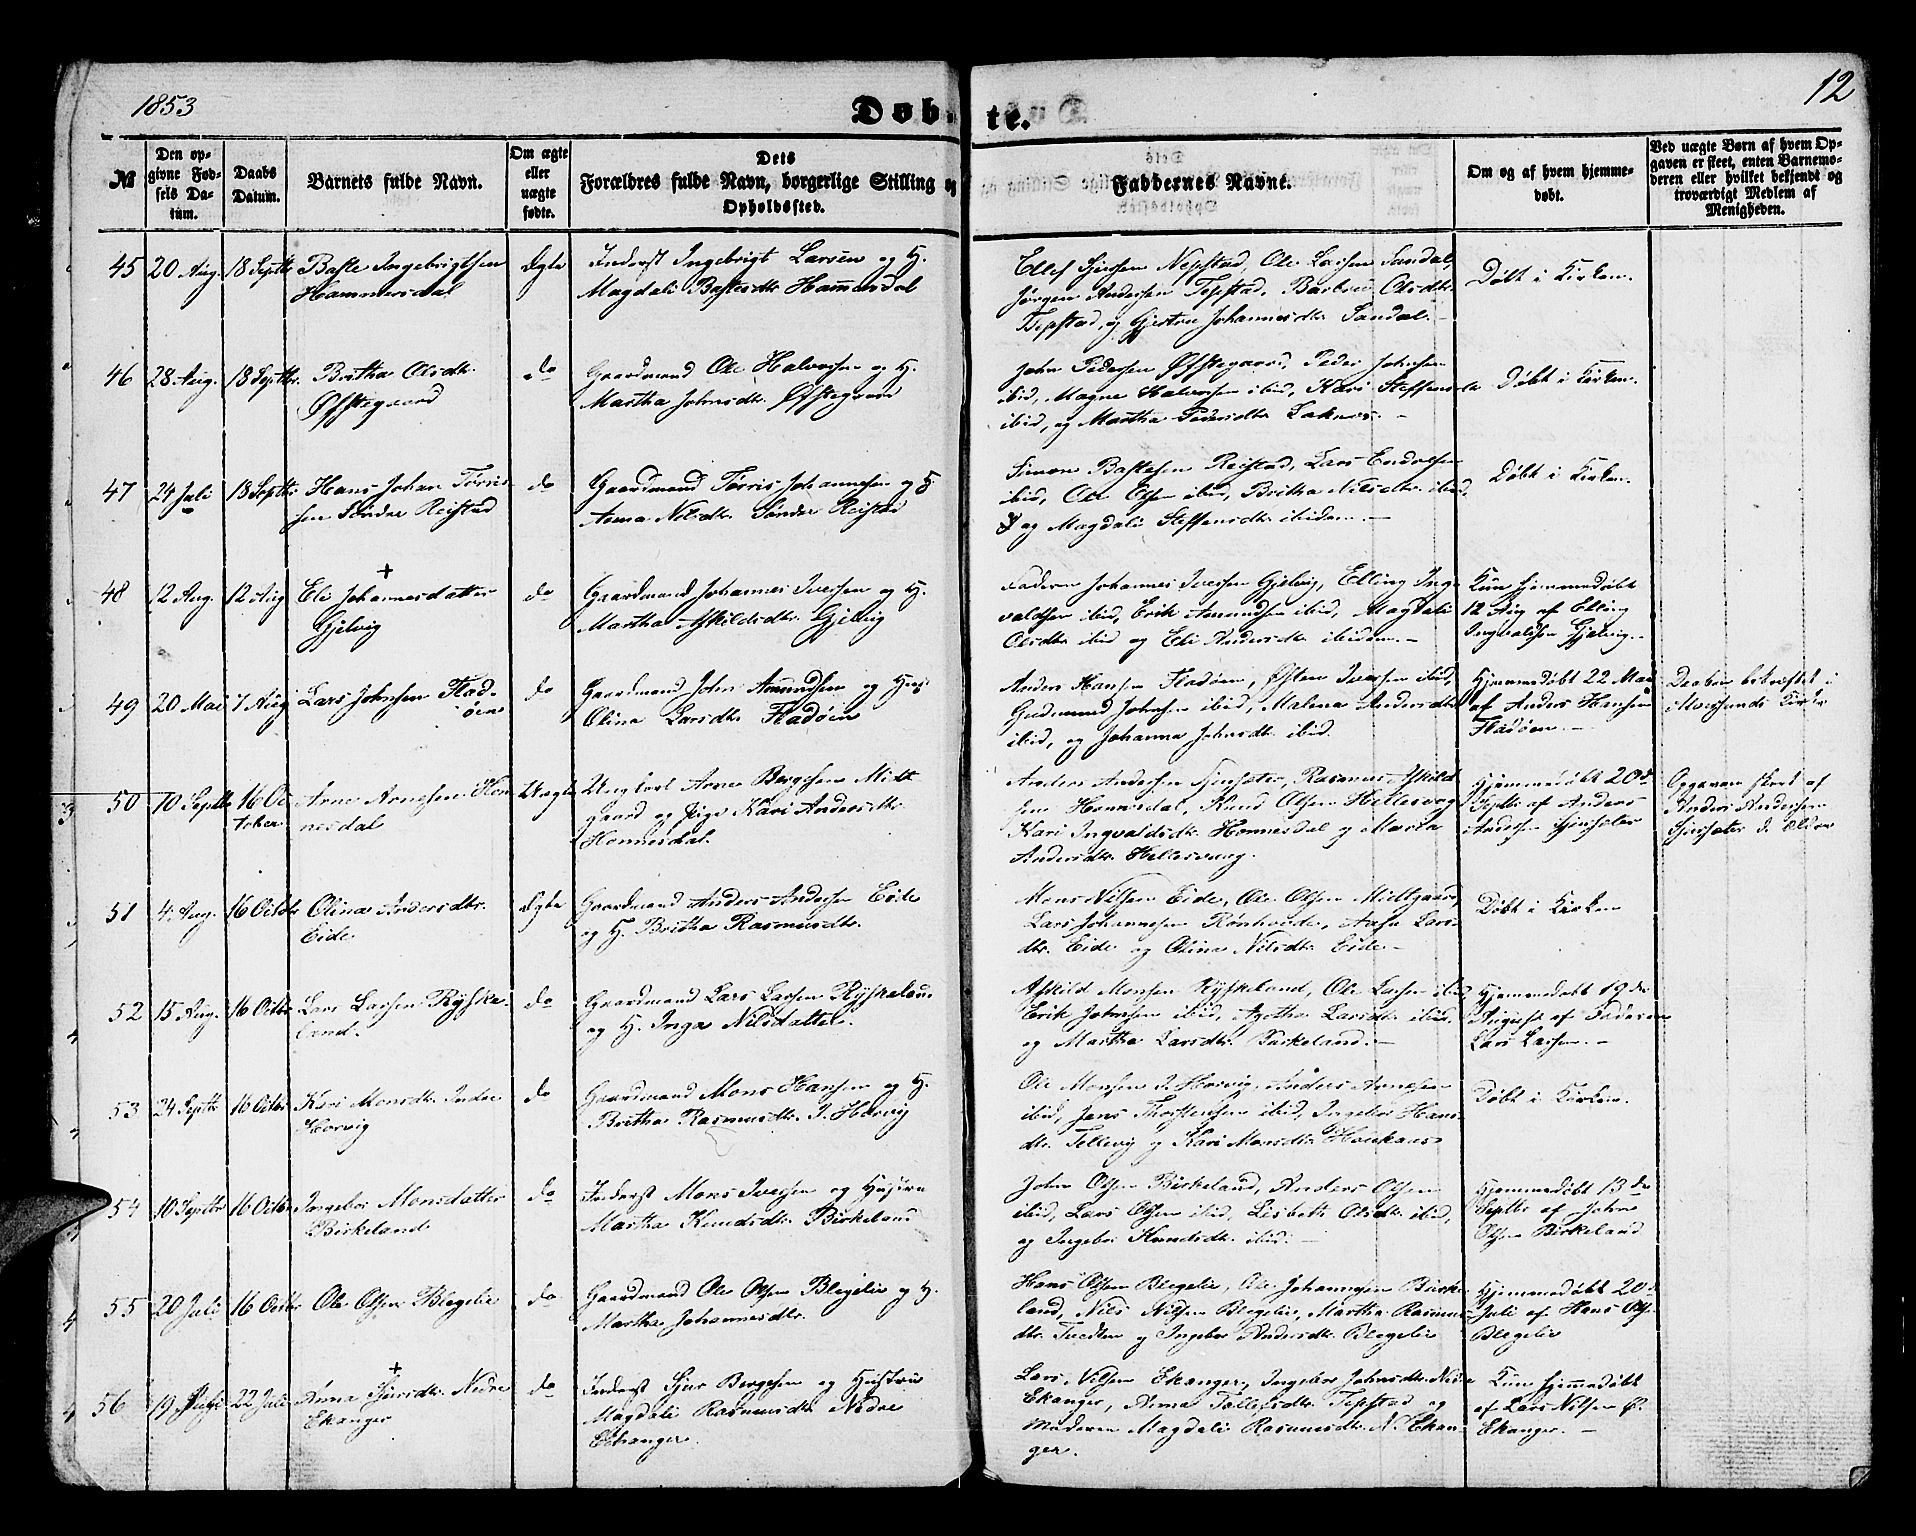 1853
Døbte.
12
№
Den opgivne Fødsels Datum.
Daabs Datum.
Barnets fulde Navn.
Om ægte eller uægte fødte.
Dets
Forældres fulde Navn, borgerlige Stilling og
Opholdssted.
Faddernes Navne.
Om og af hvem hjemmedøbt.
Ved uægte Børn af hvem Opgaven er skeet, enten Barnemoderen eller hvilket bekjendt og troværdigt Medlem af Menigheden.
45 20 Aug. 18 Septbr Baste Ingebrigtsen
Hammersdal
Ægte
Inderst Ingebrigt Larsen og H.
Magdali Bastesdtr. Hammersdal
Ellef Sjursen Nepstad, Ole Larsen Sandal,
Jørgen Andersen Tepstad, Barbro Olsdtr.
Tepstad, og Gjertru Johannesdtr. Sandal.
Døbt i Kirken.
46 28 Aug. 18 Septbr. Britha Olsdtr.
Øfstegaard
do
Gaardmand Ole Halvorsen og H.
Martha Johnsdtr. Øfstegaard
John Pedersen Øfstegaard, Peder Johnsen
ibid, Magne Halvorsen ibid, Kari Steffensdtr
ibid, og Martha Pedersdtr.
Døbt i Kirken.
47 24 Juli 18 Septbr Hans Johan Tørris-
sen Søndre Reistad
do
Gaardmand Tørris Johannesen og H
Anna Nilsdtr. Søndre Reistad
Simon Bastesen Reistad, Lars
ibid, Ole Olsen ibid, Britha Nilsdtr. ibid,
og Magdali Steffensdtr. ibidem.
Døbt i Kirken.
48 12 Aug. 12 Aug Eli Johannesdatter
Gjelvig
do
Gaardmand Johannes Iversen og H.
Martha Askildsdtr. Gjelvig
Faderen Johannes Iversen Gjelvig, Elling Ing-
valdsen ibid, Erik Amundsen ibid, Magdali
Olsdtr. ibid og Eli Andersdtr. ibidem.
Kun hjemmedøbt
12 Aug af Elling
Ingvaldsen Gjelvig.
49 20 Mai 7 Aug Lars Johnsen Flad-
øen
do
Gaardmand John Amundsen og Hus
Olina Larsdtr. Fladøen
Anders Hansen Fladøen, Østen Iversen ibid,
Gudmund Johnsen ibid, Malena Andersdtr
ibid, og Johanna Johnsdtr. ibid.
Hjemmedøbt 22 Mai
af Anders Hansen
Fladøen.
Daaben bekræftet i
Kirke
50 10 Septbr 16 Oc-
tober
Arne Arnesen Hon-
nesdal
Uægte
Ungkarl Arne Børgesen Midt-
gaard og Pige Kari Andersdtr.
Honnesdal.
Anders Andersen Sjursæter, Rasmus Askild-
sen Honnesdal, Knud Olsen Hellesvaag
Kari Ingvaldsdtr. Honnesdal og Maria
Andersdtr. Hellesvaag.
Hjemmedøbt 20de
Septbr af Anders
Andersen Sjursæter
Opgaven skeet af
Anders Andersen
Sjursæter
51 4. Aug. 16 Octbr Olina Andersdtr.
Eide
Ægte
Gaardmand Anders Andersen Eide
og H. Britha Rasmusdtr.
Mons Nilsen Eide, Ole Olsen Midtgaard,
Lars Johannesen Rønhovde, Aase Lars-
dtr. Eide og Olina Nilsdtr. Eide.
Døbt i Kirken
52 15 Aug. 16 Octbr Lars Larsen Ryske-
land.
do
Gaardmand Lars Larsen Ryskeland
og H. Inga Nilsdatter.
Askild Monsen Ryskeland, Ole Larsen ibid,
Erik Johnsen ibid, Agatha Larsdtr. ibid,
og Martha Larsdtr. Birkeland.
Hjemmedøbt 19de
August af Faderen
Lars Larsen.
53 24 Septbr 16 Octbr Kari Monsdtr. Indre
Horvig
do
Gaardmand Mons Hansen og H.
Britha Rasmusdtr. I. Horvig
Ole Monsen I. Horvig, Anders Arnesen
ibid, Jens Thorstensen ibid, Ingebor Hans-
dtr. Tellevig og Kari Monsdtr.
Døbt i Kirken.
54 10 Septbr 16 Octbr Ingebor Monsdatter
Birkeland
do
Inderst Mons Iversen og Hustru
Martha Knudsdtr. Birkeland
John Olsen Birkeland, Anders Olsen
ibid, Lars Olsen ibid, Lisbeth Olsdtr. ibid,
og Ingebor Knudsdtr. ibid.
Hjemmedøbt 13de
Septbr af John
Olsen Birkeland
55 20 Juli 16 Octbr Ole Olsen Blegelie
do
Gaardmand Ole Olsen Blegelie og H.
Martha Johannesdtr.
Hans Olsen Blegelie, Ole Johannesen Birke-
land, Nils Nilsen Blegelie, Martha Rasmus-
dtr. Tvedten og Ingebor Andersdtr. Blegelie
Hjemmedøbt 20de
Juli af Hans Ols.
Blegelie
56 19 Juli 22 Juli Anna Sjursdtr. Nedre
Ekanger
do
Inderst Sjur Børgesen og Hustru
Magdali Rasmusdtr. Nedre
Ekanger.
Lars Nilsen Ekanger, Ingebor Johnsdtr. Nedre
Ekanger, Anna Tollefsdtr. Tepstad og
Moderen Magdali Rasmusdtr. N. Ekan-
ger.
Kun hjemmedøbt
af Lars Nilsen
Ekanger.